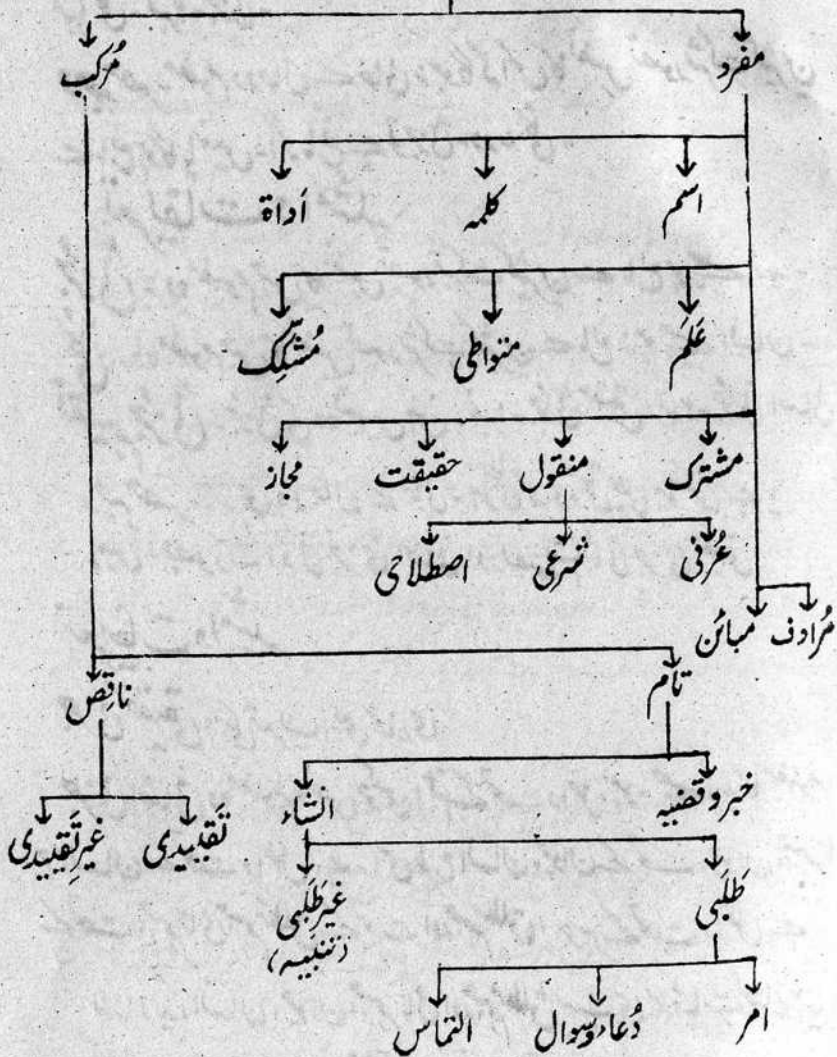 مفرد مُرکب
اسم کلمہ اَداة
عَلَم متواطی مُشکِّک
مشترک منقول حقیقت مجاز
عُرفی شرعی اصطلاحی
مُرادف مبائن
تام ناقِص
خبر و قضیہ انشاء
تَقیِیدی غیرِتَقیِیدی
طَلَبی غیرطَلَبی
(تنبیہ)
امر دُعاء و سوال التماس